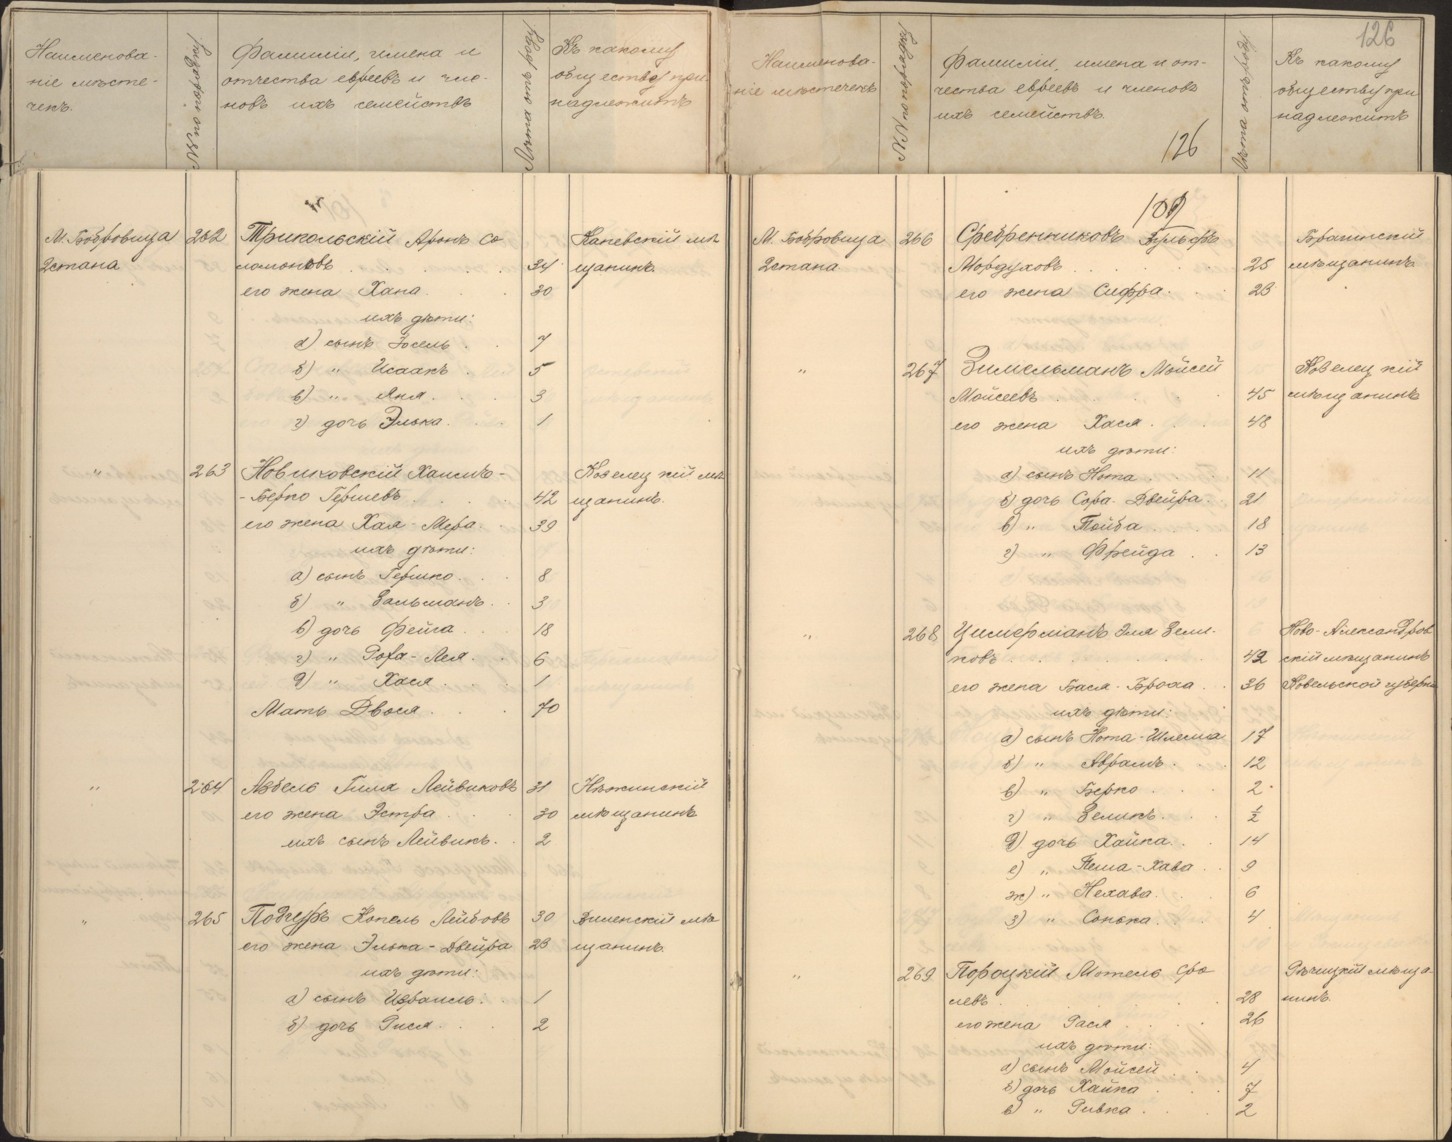 Наименова-
ніе мѣсте-
чекъ.
№№ по порядку
Фамиліи, имена и
отчества евреевъ и чле-
новъ ихъ семействъ
Лѣта отъ роду
Къ какому
обществу при
надлежитъ
М. Бобровица
2 стана
262
Трипольскій Аронъ Со
ломоновъ 34
Каневскій мѣ
щанинъ
его жена Хана 30
ихъ дѣти:
а) сынъ Іосель 7
б) " Исаакъ 5
в) " Янкл 3
г) дочь Элька 1
" 263
Новиковскій Хаимъ-
-Берко Гершевъ 42
Козелецкій мѣ
щанинъ
его жена Хая-Мера 39
ихъ дѣти:
а) сынъ Гершко 8
б) " Зальманъ 3
в) дочь Фейга 18
г) " Рося-Лея 6
д) " Хася 1
Мать Двося 70
" 264
Авбель Гиля Лейвиковъ 31
Нѣжинскій
мѣщанинъ
его жена Эстра 30
ихъ сынъ Лейвикъ 2
" 265
Подгуръ Копель Лейбовъ 30
Виленскій мѣ
щанинъ
его жена Элька-Двейра 28
ихъ дѣти:
а) сынъ Израиль 1
б) дочь Рися 2
126
Наименова-
ніе мѣстечекъ
№№ по порядку
Фамиліи, имена и от-
чества евреевъ и членовъ
ихъ семействъ
126
Лѣта отъ роду
Къ какому
обществу при
надлежитъ
М. Бобровица
2 стана
266
Сребренниковъ Вульфъ
Мордуховъ 25
Борзенскій
мѣщанинъ
его жена Сифра 23
" 267
Зимельманъ Мойсей
Мойсеевъ 45
Козелецкій
мѣщанинъ
его жена Хася 48
ихъ дѣти:
а) сынъ Нота 11
б) дочь Сора-Двейра 21
в) " Тойба 18
г) " Фрейда 13
" 268
Цимерманъ Эля Зели-
ковъ 42
Ново-Александров
скій мѣщанинъ
Ковельской губерн
его жена Бася-Броха 36
ихъ дѣти:
а) сынъ Нота-Шлема 17
б) " Аврамъ 12
в) " Берко 2
г) " Зеликъ ½
д) дочь Хайка 14
е) " Песша-Хава 9
ж) " Нехава 6
з) " Сонька 4
" 269
Пороцкій Мотель Сро
левъ 28
Рѣчицкій мѣща
нинъ
его жена Рася 26
ихъ дѣти:
а) сынъ Мойсей 4
б) дочь Хайка 7
в) " Ривка 2